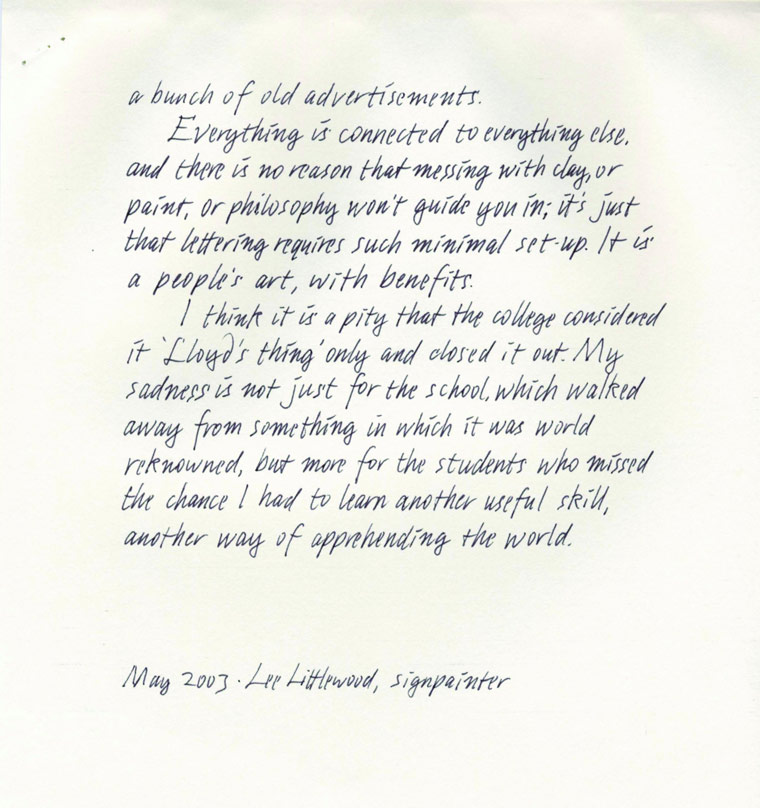 a bunch of old advertisements.
Everything is connected to everything else,
and there is no reason that messing with clay, or
paint, or philosophy won't guide you in; it's just
that lettering requires such minimal set-up. It is
a people's art, with benefits.
I think it is a pity that the college considered
it 'Lloyd's thing' only and closed it out. My
sadness is not just for the school, which walked
away from something in which it was world
reknowned, but more for the students who missed
the chance I had to learn another useful skill,
another way of apprehending the world.
May 2003 · Lee Littlewood, signpainter